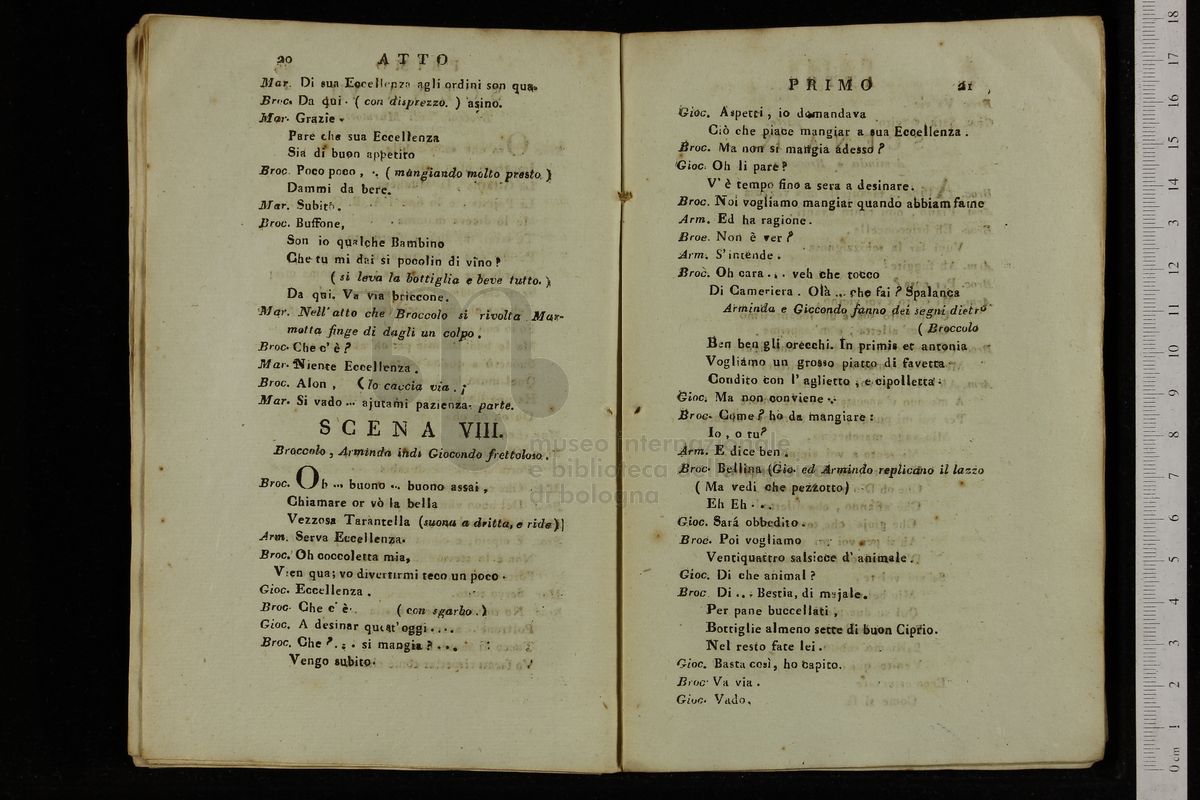 20 ATTO
Mar. Di sua Eccellenza agli ordini son qua.
Broc. Da qui. (con disprezzo.) asino.
Mar. Grazie.
Pare che sua Eccellenza
Sia di buon appetito
Broc. Poco poco, .. (mangiando molto presto.)
Dammi da bere.
Mar. Subito.
Broc. Buffone,
Son io qualche Bambino
Che tu mi dai si pocolin di vino?
(si leva la bottiglia e beve tutto.)
Da qui. Va via briccone.
Mar. Nell' atto che Broccolo si rivolta Mar-
motta finge di dagli un colpo.
Broc. Che c' è?
Mar. Niente Eccellenza.
Broc. Alon, (lo caccia via.;
Mar. Si vado ... ajutami pazienza. parte.
SCENA VIII.
Broccolo, Arminda indi Giocondo frettoloso.
Broc. Oh ... buono ... buono assai,
Chiamare or vò la bella
Vezzosa Tarantella (suona a dritta, e ride)]
Arm. Serva Eccellenza.
Broc. Oh coccoletta mia,
Vien qua; vo divertirmi teco un poco.
Gioc. Eccellenza.
Broc. Che c' è. (con sgarbo.)
Gioc. A desinar quest' oggi....
Broc. Che?... si mangia?...
Vengo subito.
PRIMO 21
Gioc. Aspetti, io domandava
Ciò che piace mangiar a sua Eccellenza.
Broc. Ma non si mangia adesso?
Gioc. Oh li pare?
V' è tempo fino a sera a desinare.
Broc. Noi vogliamo mangiar quando abbiam fame
Arm. Ed ha ragione.
Broc. Non è ver?
Arm. S' intende.
Broc. Oh cara... veh che tocco
Di Cameriera. Olà ... che fai? Spalanca
Arminda e Giccondo fanno dei segni dietro
(Broccolo
Ben ben gli orecchi. In primis et antonia
Vogliamo un grosso piatto di favetta
Condito con l' aglietto, e cipolletta.
Gioc. Ma non conviene ..
Broc. Come? ho da mangiare:
Io, o tu?
Arm. E dice ben.
Broc. Bellina (Gio. ed Armindo replicano il lazzo
(Ma vedi che pezzotto)
Eh Eh...
Gioc. Sará obbedito.
Broc. Poi vogliamo
Ventiquattro salsicce d' animale.
Gioc. Di che animal?
Broc Di... Bestia, di majale.
Per pane buccellati,
Bottiglie almeno sette di buon Ciprio.
Nel resto fate lei.
Gioc. Basta così, ho capito.
Broc. Va via.
Gioc. Vado,
museo internazionale
e biblioteca
di bologna
0 cm 1 2 3 4 5 6 7 8 9 10 11 12 13 14 15 16 17 18